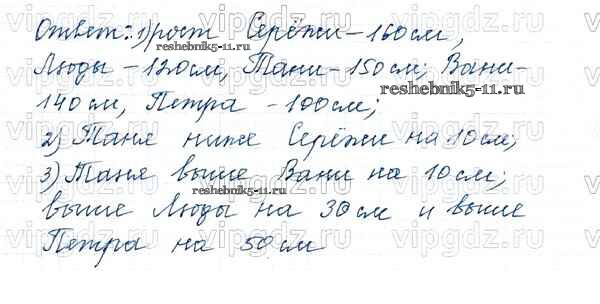 Ответ: 1) рост Серёжи - 160 см,
Люды - 120 см, Тани - 150 см; Вани -
140 см, Петра - 100 см;
2) Таня ниже Серёжи на 10 см;
3) Таня выше Вани на 10 см;
выше Люды на 30 см и выше
Петра на 50 см
reshebnik5-11.ru
reshebnik5-11.ru
reshebnik5-11.ru
vipgdz.ru
vipgdz.ru
vipgdz.ru